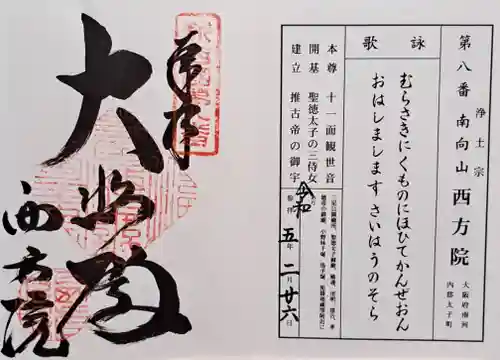 浄土宗
第八番 南向山 西方院
大阪府南河
内郡太子町
詠歌
むらさきにくものにほひてかんぜおん
おはしましますさいはうのそら
本尊 十一面観世音
開基 聖徳太子の三侍女
建立 推古帝の御宇
令和五年二月廿六日
参拝
奉拝
大悲殿
西方院